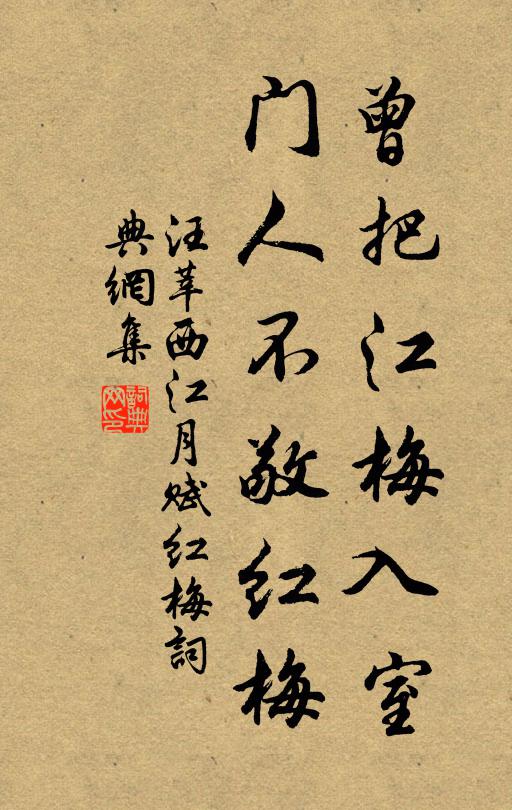 曾把江梅入室
门人不敬红梅
汪莘西江月赋红梅詞
典網集
詞典网印